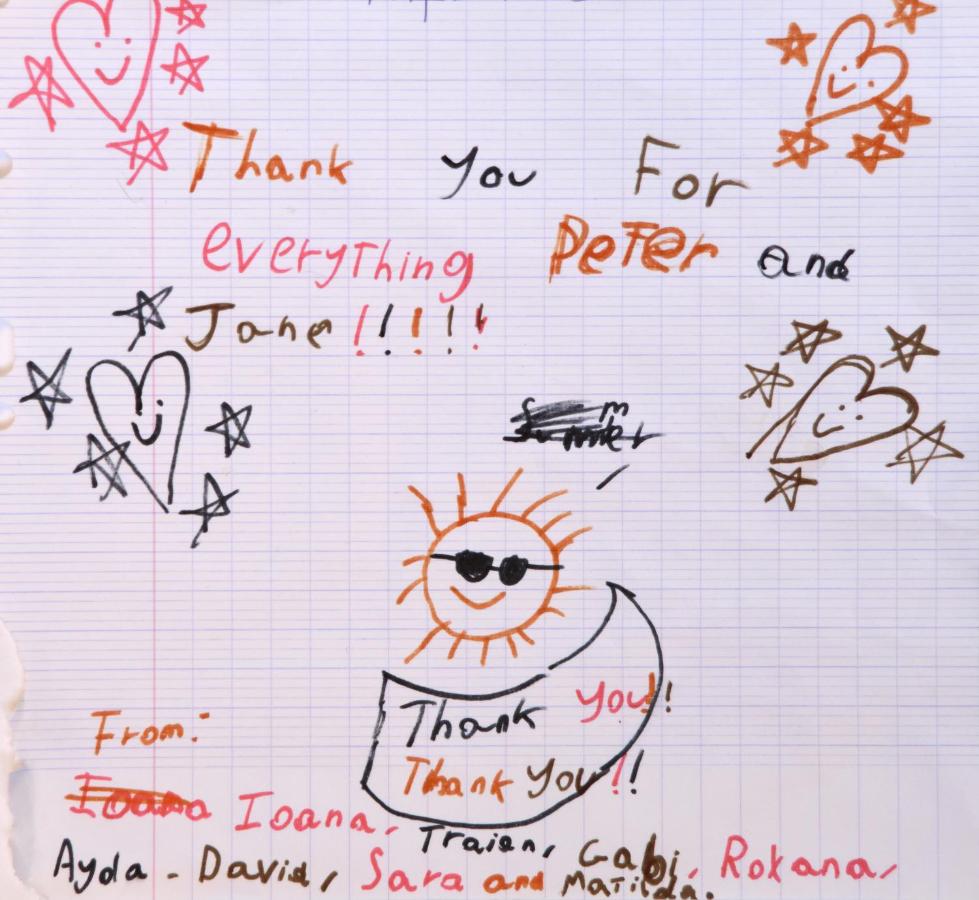 Thank you For
everything PeTer and
Jane !!!!!
Summer
Thank you!!
Thank you!!
From:
Ioana Ioana,
Traian, Gabi, Rokana,
Ayda - David, Sara and Matilda.